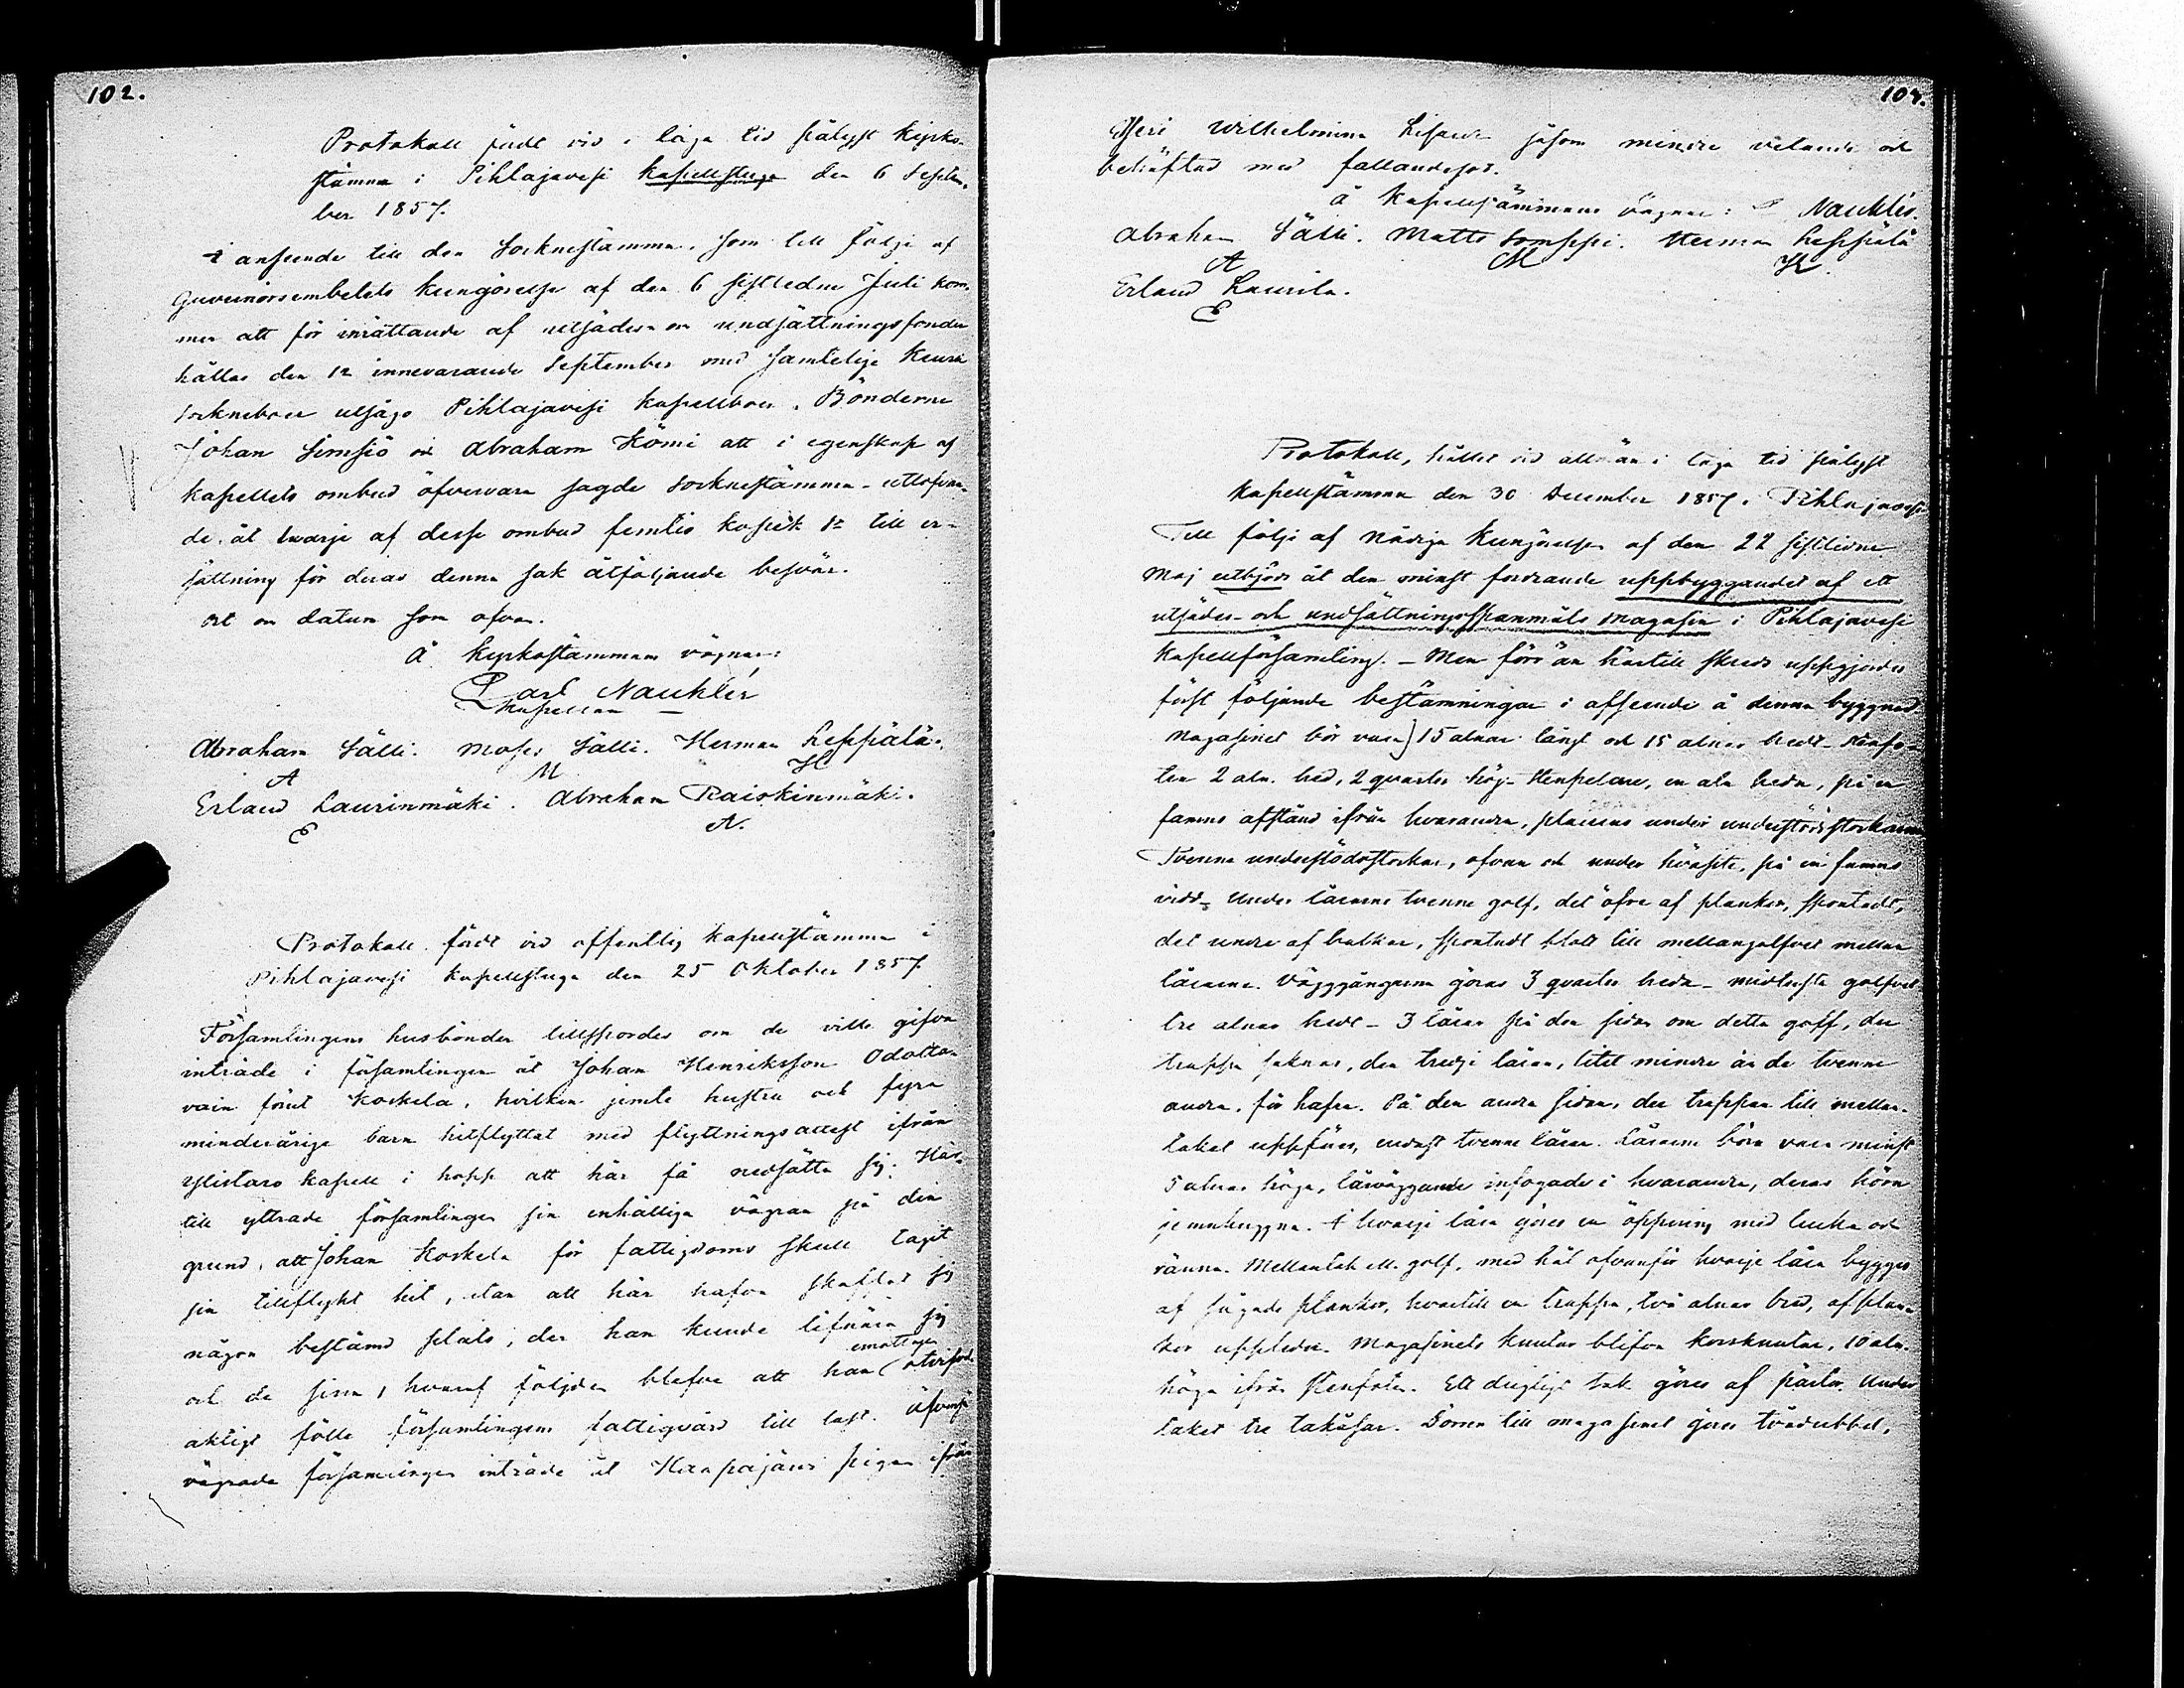 102.
Protokoll fördt vid i laga tid pålyst kyrko-
stämma i Pihlajavesi kapellstuga den 6 Septem-
ber 1857.
I anseende till den Socknestämma, som till följe af
Guvernörsembetets kungörelse af den 6 sistledne Juli kom-
mer att för inrättande af utsädes- och undsättningsfonder
hållas den 12 innevarande September med samtelige Keuru
socknebor utsågo Pihlajavesi kapellboer, Bönderne
Johan Simsiö och Abraham Kömi att i egenskap af
kapellets ombud öfvervara sagde Socknestämma - utlofvan-
de åt hvarje af desse ombud femtio kopek sr till er-
sättning för deras denna sak åtföljande besvär.
Ort och datum som ofvan.
Å kyrkostämmans vägnar:
Carl Nauklér
Kapellan
Abraham Sälli. Moses Sälli. Herman Leppälä.
A M H
Erland Laurinmäki. Abraham Raiskinmäki.
E A.
Protokoll fördt vid offentlig kapellstämma i
Pihlajavesi kapellstuga den 25 Oktober 1857.
Församlingens husbönder tillspordes om de ville gifva
inträde i församlingen åt Johan Henriksson Odotta-
vain förut Koskela, hvilken jemte hustru och fyra
minderåriga barn hitflyttat med flyttningsattest ifrån
Ylistaro kapell i hopp att här få nedsätta sig. Här-
till yttrade församlingen sin enhälliga vägran på den
grund, att Johan Koskela för fattigdoms skull tagit
sin tillflykt hit, utan att här hafva skaffat sig
någon bestämd plats, der han kunde lifnära sig
och de sina, hvaraf följden blefve att han (emottagen
aktigt fölle församlingens fattigvård till last. Äfven så
vägrade församlingen inträde åt Haapajärvi pigan ifrån
104.
Wilhelmina såsom mindre vetande och
behäftad med fallandesot.
å Kapellstämmans vägnar: Nauklér.
Abraham Sälli. Matts Somppi. Herman Leppälä
A M H.
Erland Laurila.
E
Protokoll, hållet vid allmän i laga tid pålyst
kapellstämma den 30 December 1857. Pihlajavesi
Till följe af Nådiga Kungörelsen af den 22 sistlidne
Maj utbjöds åt den minst fordrande uppbyggandet af ett
utsädes- och undsättningsspanmåls magasin i Pihlajavesi
Kapellförsamling. - Men förr än härtill skreds uppgjordes
först följande bestämningar i afseende å denna byggnad.
Magasinet bör vara) 15 alnar långt och 15 alnar bredt - Stenfo-
ten 2 aln. bred, 2 quarter hög - Stenpelare, en aln breda, på en
famns afstånd ifrån hvarandra, placeras under understödsstockarne
Tvenne understödsstockar, ofvan och under hvarpte, på en famns
vidd - Under lårarne tvenne golf, det öfre af plankor, spontadt,
det undre af bubbar, spontadt blott till mellangolfvet mellan
lårarne. Vägggångarna göras 3 quarter breda - midtersta golfvet
tre alnar bredt - 3 lårar på den sidan om detta golf, der
trappa saknas, den tredje låran, litet mindre än de tvenne
andra, för hafra. På den andra sidan, der trappan till mellan-
taket uppföres, endast tvenne lårar. Lårarne böra vara minst
5 alnar höga, lårväggarne infogade i hvarandra, deras hörn
jemnhuggna. I hvarje låra göres en öppning med lucka och
ränna. Mellantak ell. golf, med hål ofvanför hvarje låra bygges
af sågade plankor, hvartill en trappa, två alnar bred, af plan-
kor uppledes. Magasinets knutar blifva korsknutar, 10 aln.
höga ifrån stenfoten. Ett dugligt tak göres af pärtor. Under
taket tre takåsar. Dörren till magasinet göres tvådubbel,